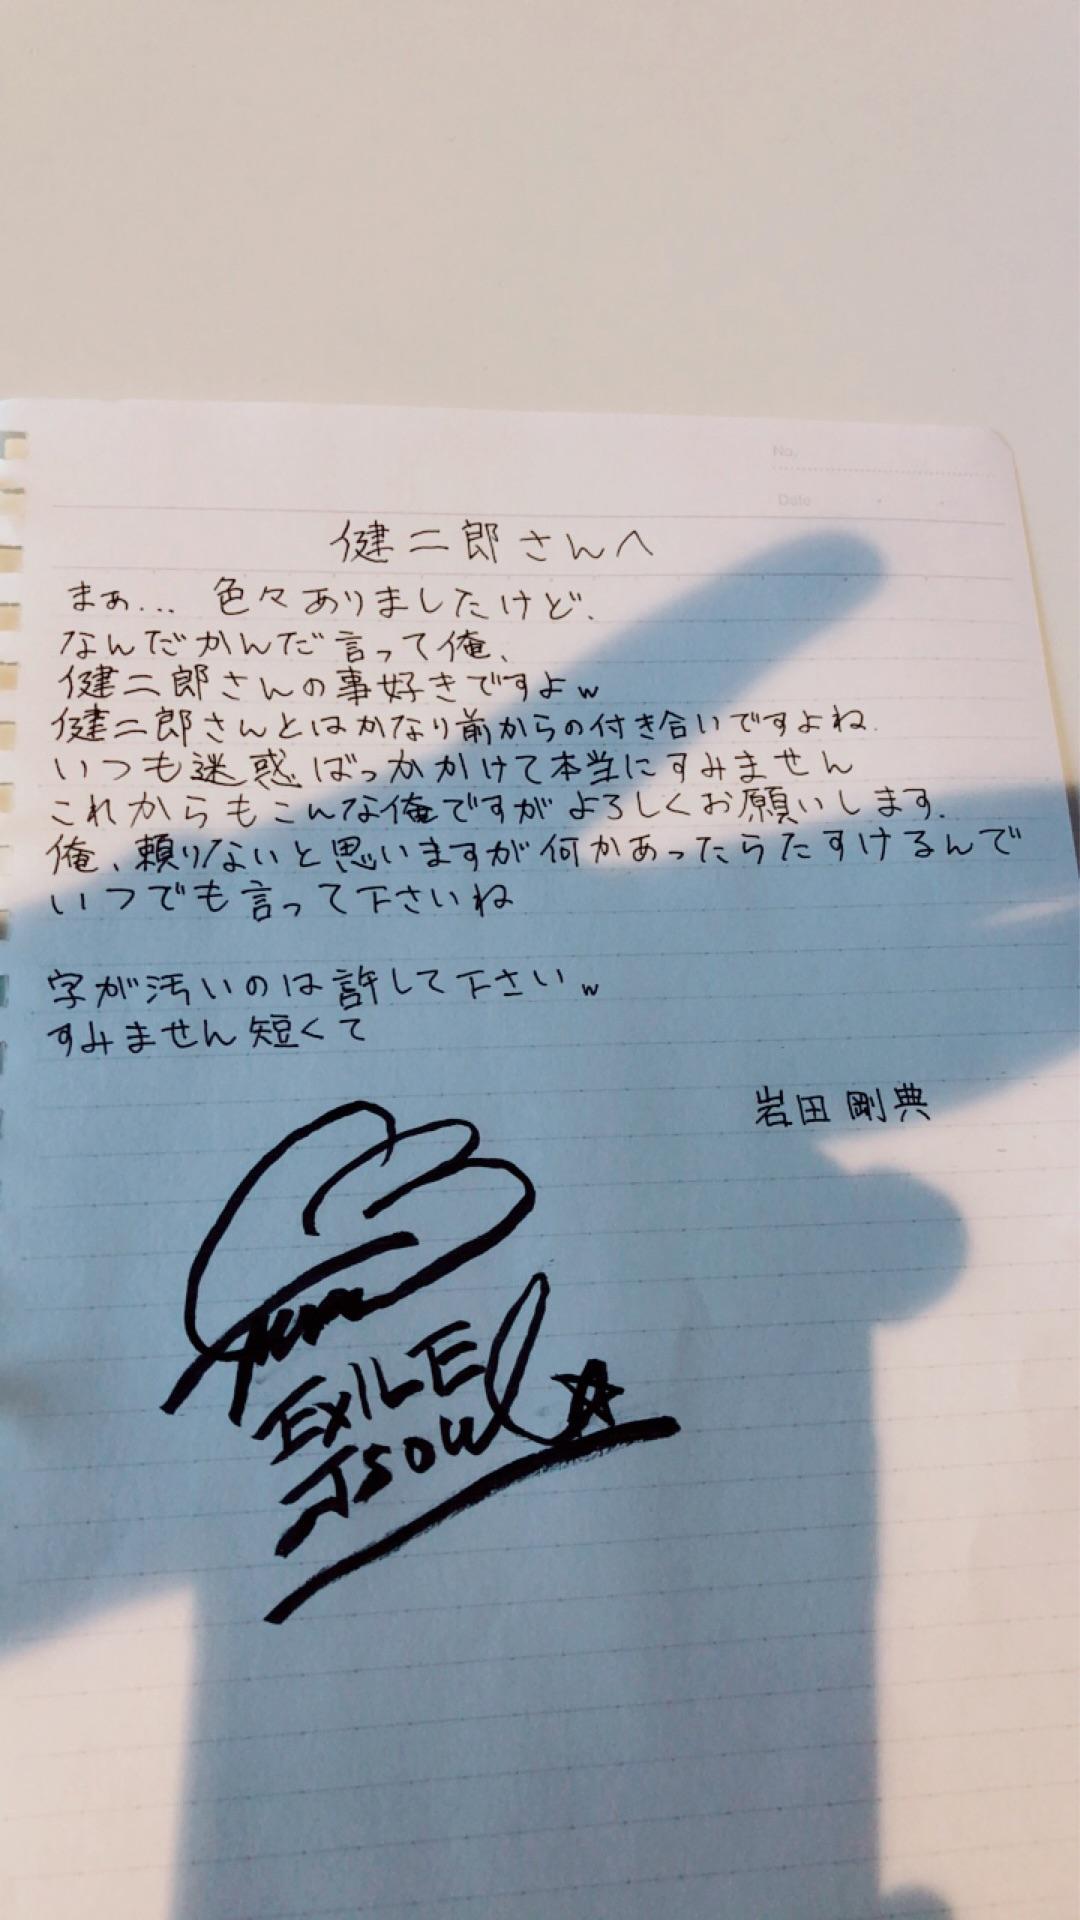 No.
Date
健二郎さんへ
まぁ... 色々ありましたけど、
なんだかんだ言って俺、
健二郎さんの事好きですよw
健二郎さんとはかなり前からの付き合いですよね.
いつも迷惑ばっかかけて本当にすみません
これからもこんな俺ですがよろしくお願いします.
俺、頼りないと思いますが何かあったらたすけるんで
いつでも言って下さいね
字が汚いのは許して下さいw
すみません短くて
岩田剛典
EXILE
JSOUL